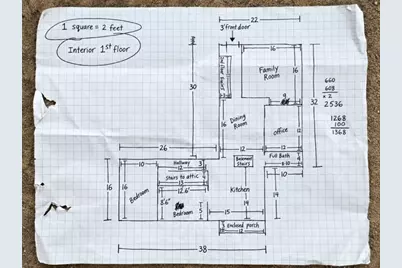 1 square = 2 feet
Interior 1st floor
22
3' front door
16
Family
Room
16
30
32
660
608
x 2
2536
1268
100
1368
9
Dining
Room
office
16
12
26
12
12
10
Hallway
3
12
Basement
Stairs
Full Bath
10
Stairs to attic
13
12'6"
10
16
16
Bedroom
8'6"
Bedroom
Kitchen
14
14
15
Enclosed porch
12
38